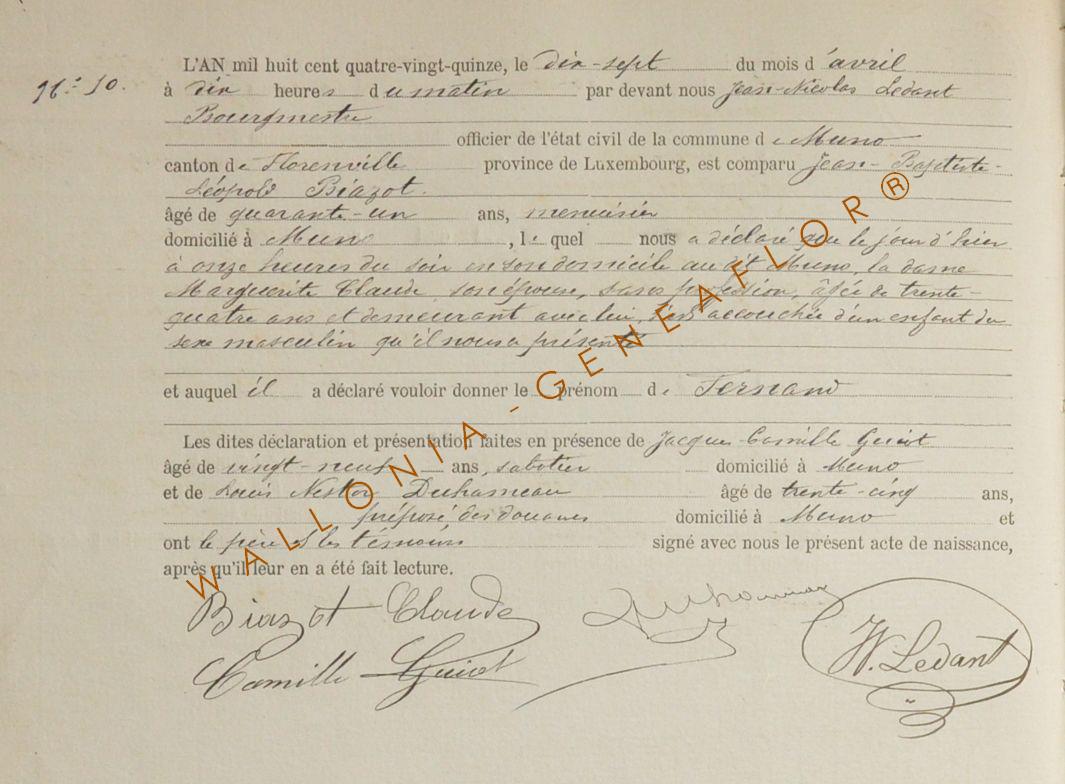 N.° 10.
L'AN mil huit cent quatre-vingt-quinze, le dix-sept du mois d'avril
à dix heures du matin par devant nous Jean-Nicolas Ledant
Bourgmestre
officier de l'état civil de la commune de Muno
canton de Florenville province de Luxembourg, est comparu Jean-Baptiste-
Léopold Biazot.
âgé de quarante-un ans, menuisier
domicilié à Muno, lequel nous a déclaré que le jour d'hier
à onze heures du soir en son domicile au dit Muno, la dame
Marguerite Claude, son épouse, sans profession, âgée de trente-
quatre ans et demeurant avec lui, s'est accouchée d'un enfant du
sexe masculin qu'il nous a présenté
et auquel il a déclaré vouloir donner le prénom de Fernand
Les dites déclaration et présentation faites en présence de Jacques-Camille Guiot
âgé de vingt-neuf ans, sabotier domicilié à Muno
et de Louis Nestor Duhameau âgé de trente-cinq ans,
préposé des douanes domicilié à Muno et
ont le père et les témoins signé avec nous le présent acte de naissance,
après qu'il leur en a été fait lecture.
Biazot Claude
Camille Guiot
N. Ledant
WALLONIA-GENEAFLOR®